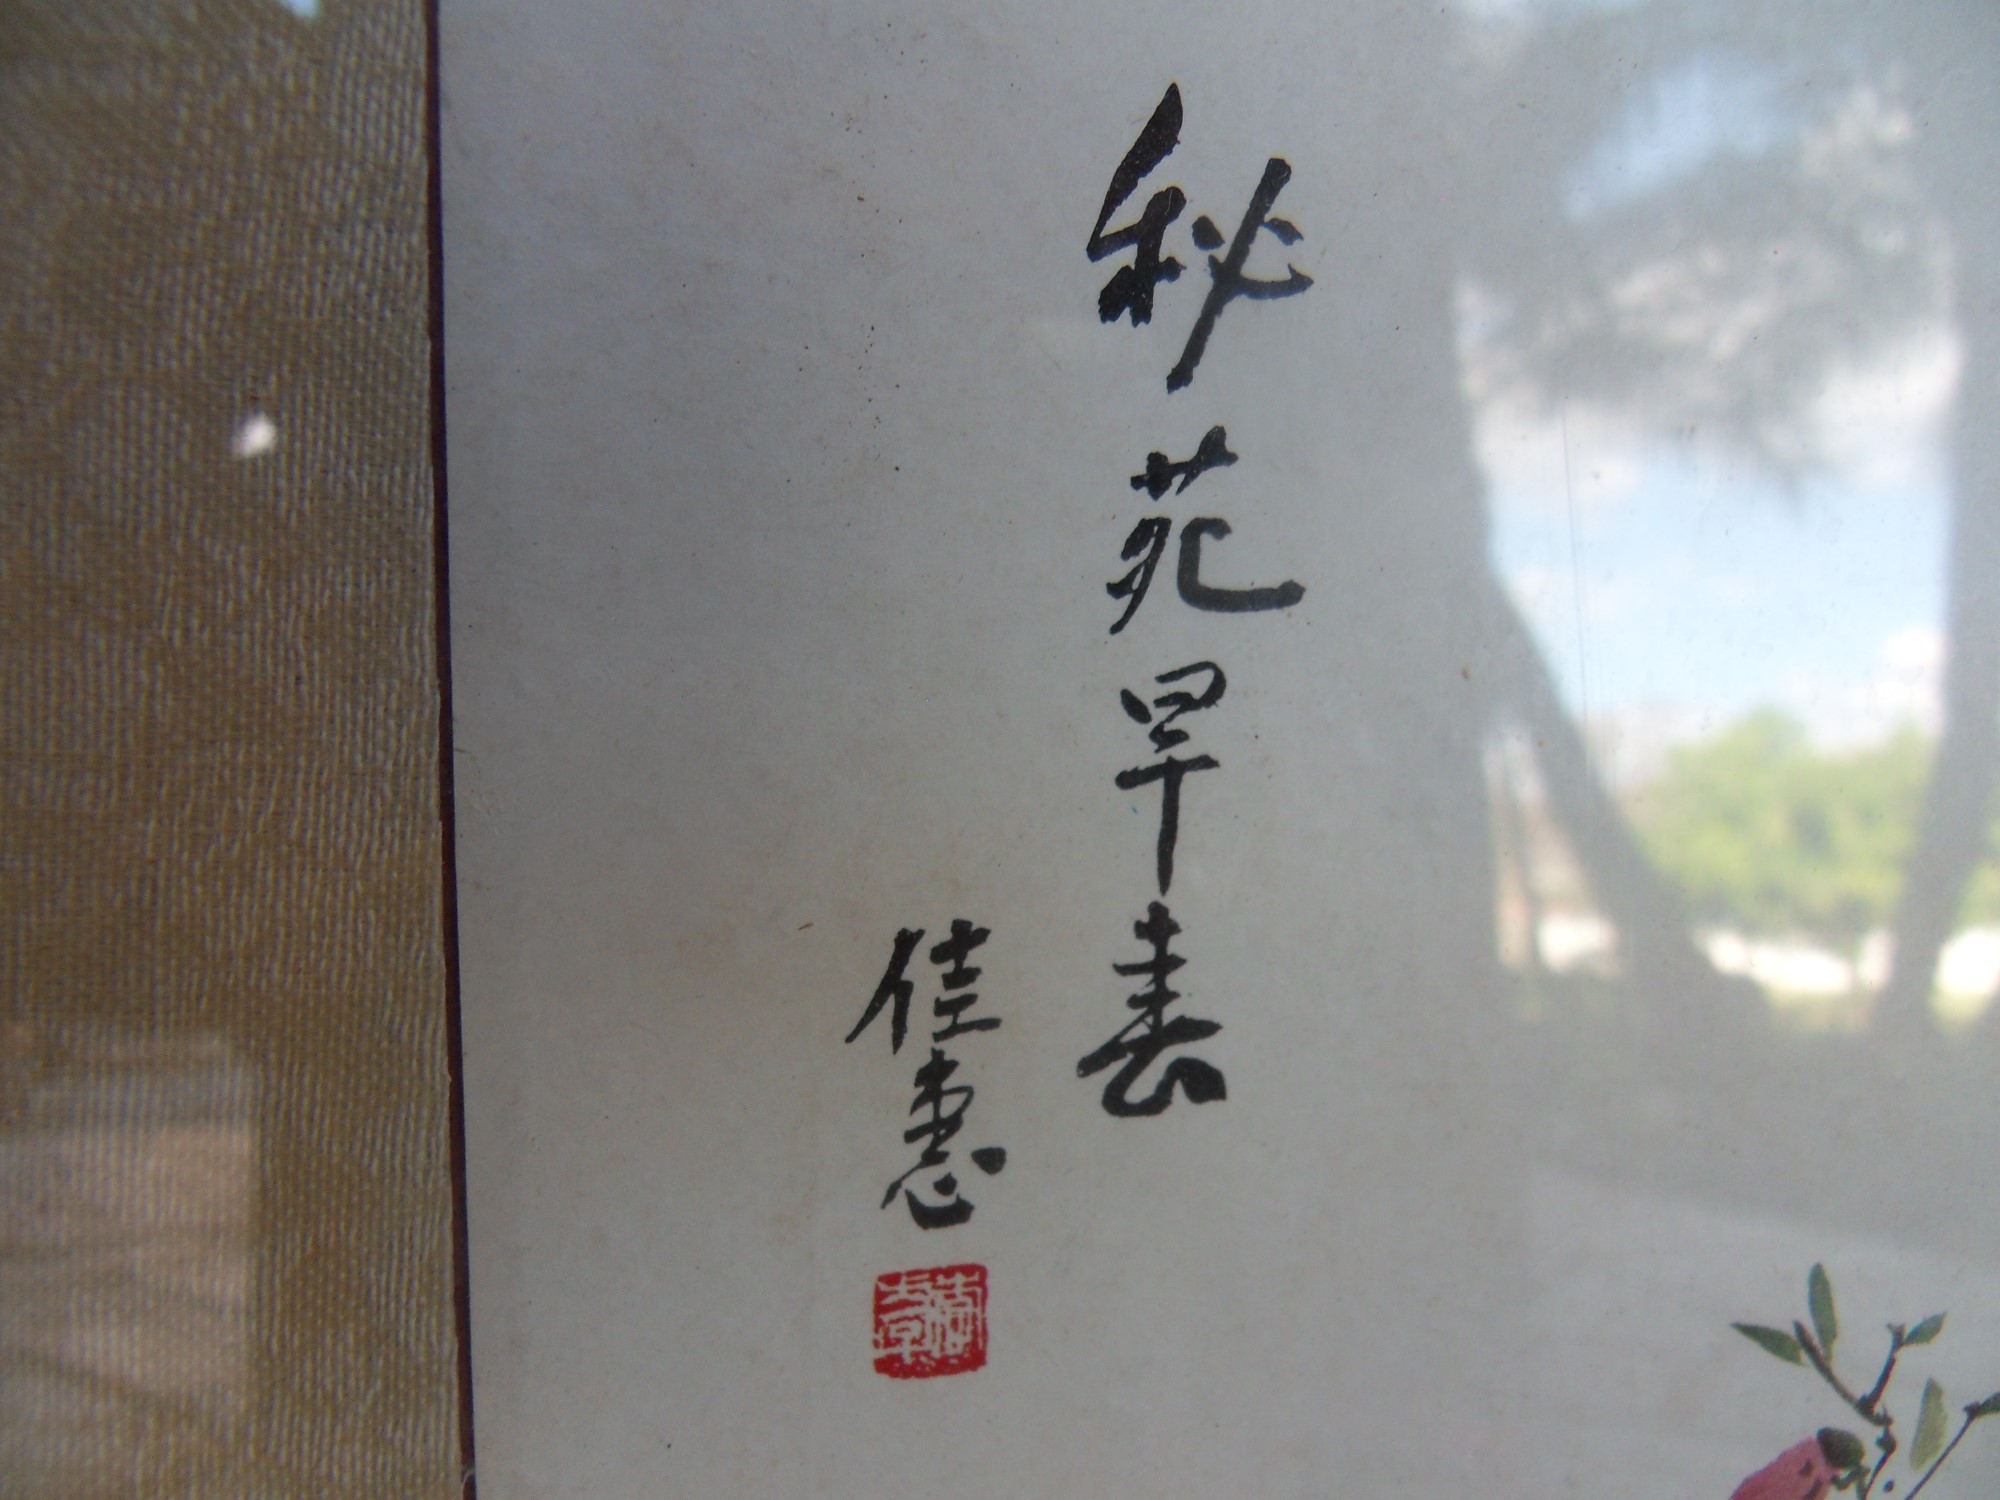 秘苑早春
佳惠